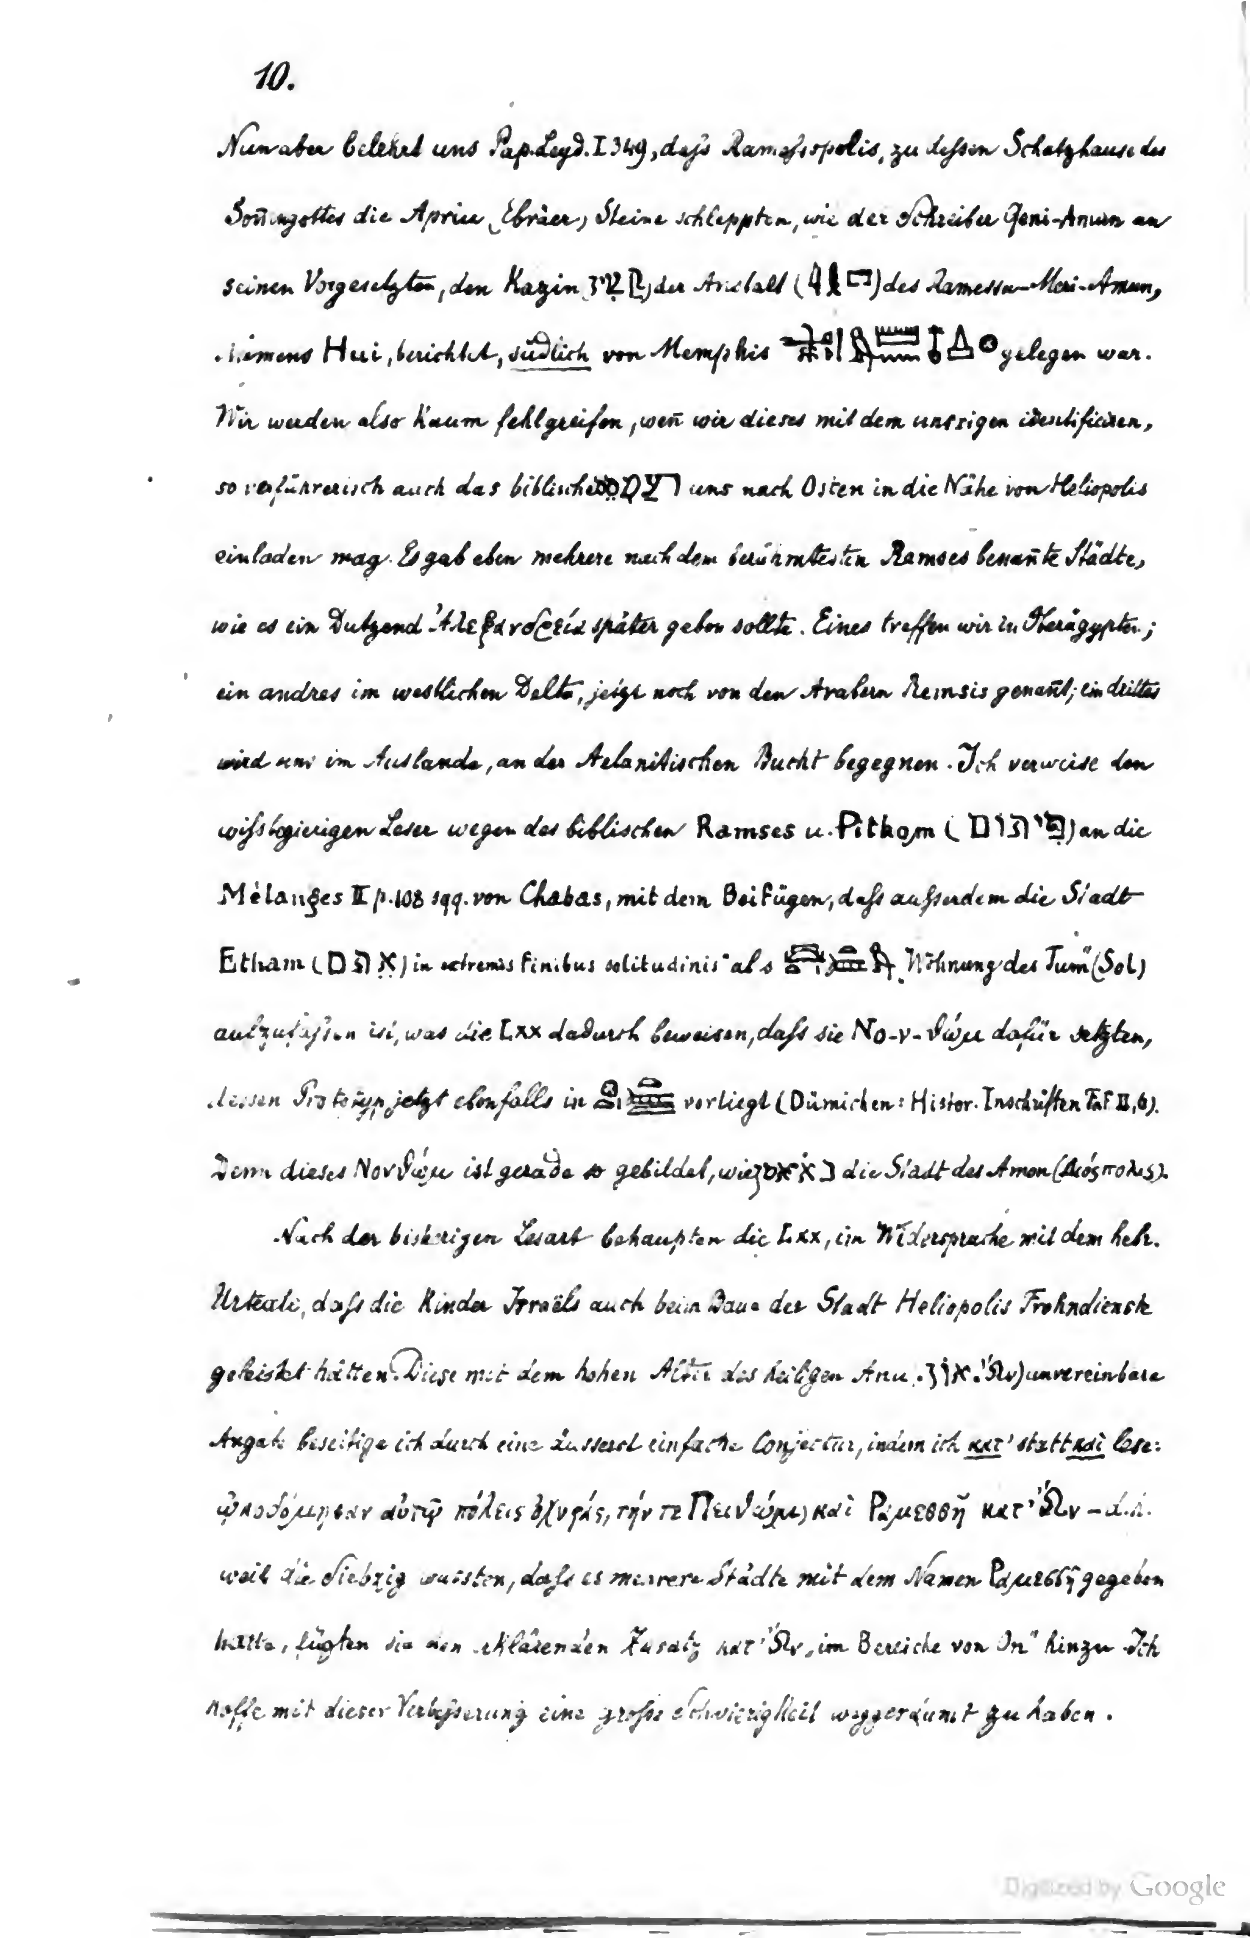 10.
Nun aber belehrt uns Pap. Leyd. I 349, daſs Ramessopolis, zu deſsen Schatzhause des
Soñengottes die Apriu (Ebräer) Steine schleppten, wie der Schreiber Qeni-Amun an
seinen Vorgesetzten, den Kazin (קָצִין) der Anstalt (𓇋𓀀𓉐) des Ramessu-Meri-Amun,
Namens Hui, berichtet, südlich von Memphis gelegen war.
Wir werden also kaum fehlgreifen, weñ wir dieses mit dem unsrigen identificiren,
so verführerisch auch das biblische רעמסס uns nach Osten in die Nähe von Heliopolis
einladen mag. Es gab eben mehrere nach dem berühmtesten Ramses benañte Städte,
wie es ein Dutzend Ἀλεξανδρεία später geben sollte. Eines treffen wir in Oberägypten;
ein andres im westlichen Delta, jetzt noch von den Arabern Remsis genañt; ein drittes
wird uns im Auslande, an der Aelanitischen Bucht begegnen. Ich verweise den
wiſsbegierigen Leser wegen des biblischen Ramses u. Pithom (פִּיתֹום) an die
Mélanges II p. 108 sqq. von Chabas, mit dem Beifügen, daſs auſserdem die Stadt
Etham (אתם) „in extremis finibus solitudinis" als „Wohnung des Tum" (Sol)
aufzufaſsen ist, was die Lxx dadurch beweisen, daſs sie Νο-ν-θώμ dafür setzten,
dessen Prototyp jetzt ebenfalls in vorliegt (Dümichen: Histor. Inschriften Taf II, 6).
Denn dieses Νονθώμ ist gerade so gebildet, wie נֹא אמון die Stadt des Amon (Διόςπολις).
Nach der bisherigen Lesart behaupten die Lxx, im Widerspruche mit dem hebr.
Urtexte, daſs die Kinder Israëls auch beim Baue der Stadt Heliopolis Frohndienste
geleistet hätten. Diese mit dem hohen Alter des heiligen Anu (אֹון, Ὤν) unvereinbare
Angabe beseitige ich durch eine äusserst einfache Conjectur, indem ich κατ' statt καὶ lese:
ᾠκοδόμησαν αὐτῷ πόλεις ὀχυράς, τήν τε Πειθώμ, καὶ Ῥαμεσσῆ κατ' Ὤν – d.h.
weil die Siebzig wussten, daſs es mehrere Städte mit dem Namen Ῥαμεσσῆ gegeben
hatte, fügten sie den erklärenden Zusatz κατ' Ὤν „im Bereiche von On" hinzu. Ich
hoffe mit dieser Verbeſserung eine groſse Schwierigkeit weggeräumt zu haben.
Digitized by Google